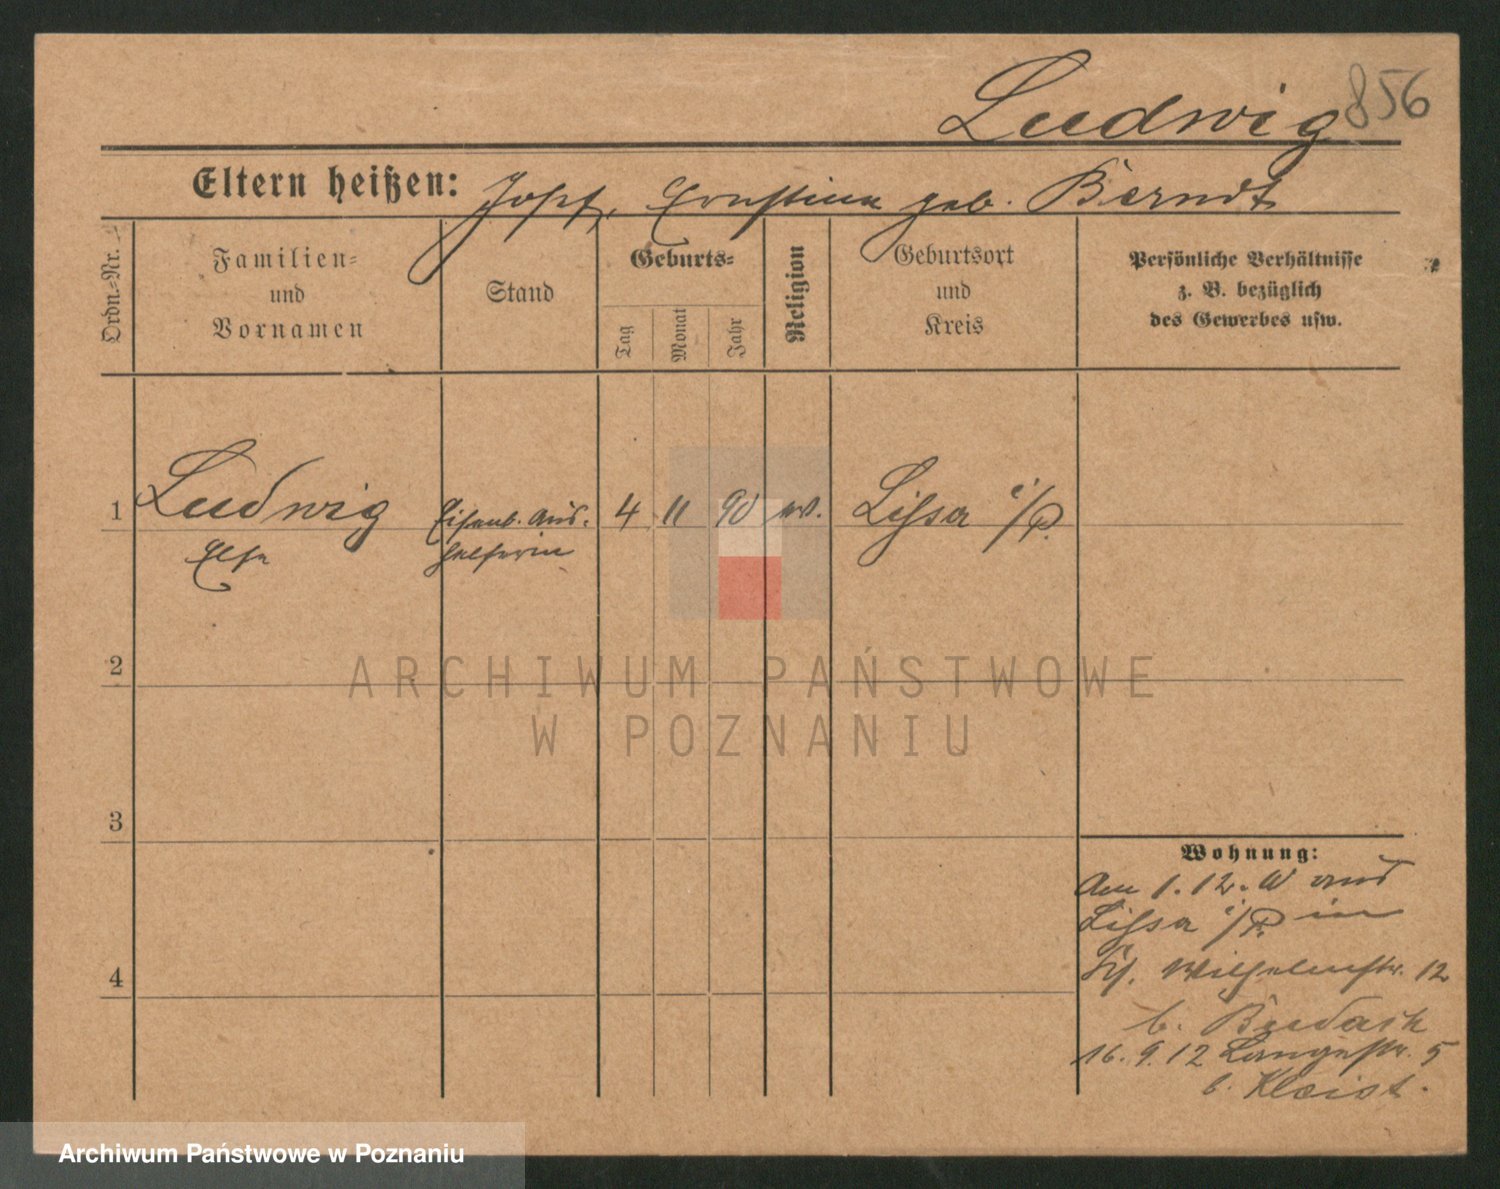 Ludwig 856
Eltern heißen: Josef, Ernstine geb. Berndt
Ordn.-Nr.
Familien-
und
Vornamen
Stand
Geburts-
Tag
Monat
Jahr
Religion
Geburtsort
und
Kreis
Persönliche Verhältnisse
z. B. bezüglich
des Gewerbes usw.
1 Ludwig Eisenb. Aus- 4 11 90 ev. Lissa i/P.
Else helferin
2
ARCHIWUM PAŃSTWOWE
W POZNANIU
3
Wohnung:
Am 1.12. aus
Lissa i/P. in
4
Wilhelmstr. 12
b. Budach
16.9.12 Langestr. 5
b. Kleist.
Archiwum Państwowe w Poznaniu